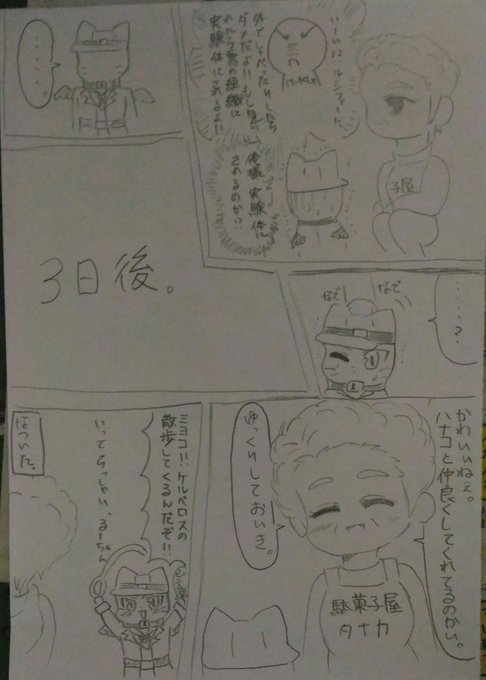 いーい?ルシファーた。
外でしゃべったりしたら
ダメだよ!!もし見つ
かったら悪の組織に
実験体にされるよ!!
俺様、実験体に
されるのか!?
子屋
・・・・・・。
・・・・・・?
なで
なで
3日後。
かわいいねぇ。
ハナコと仲良くしてくれてるのかい。
ゆっくりしておいき。
駄菓子屋
タナカ
ミヨコ!!ケルベロスの
散歩してくるんだぞ!!
いってらっしゃい、るーちゃん
なついた。